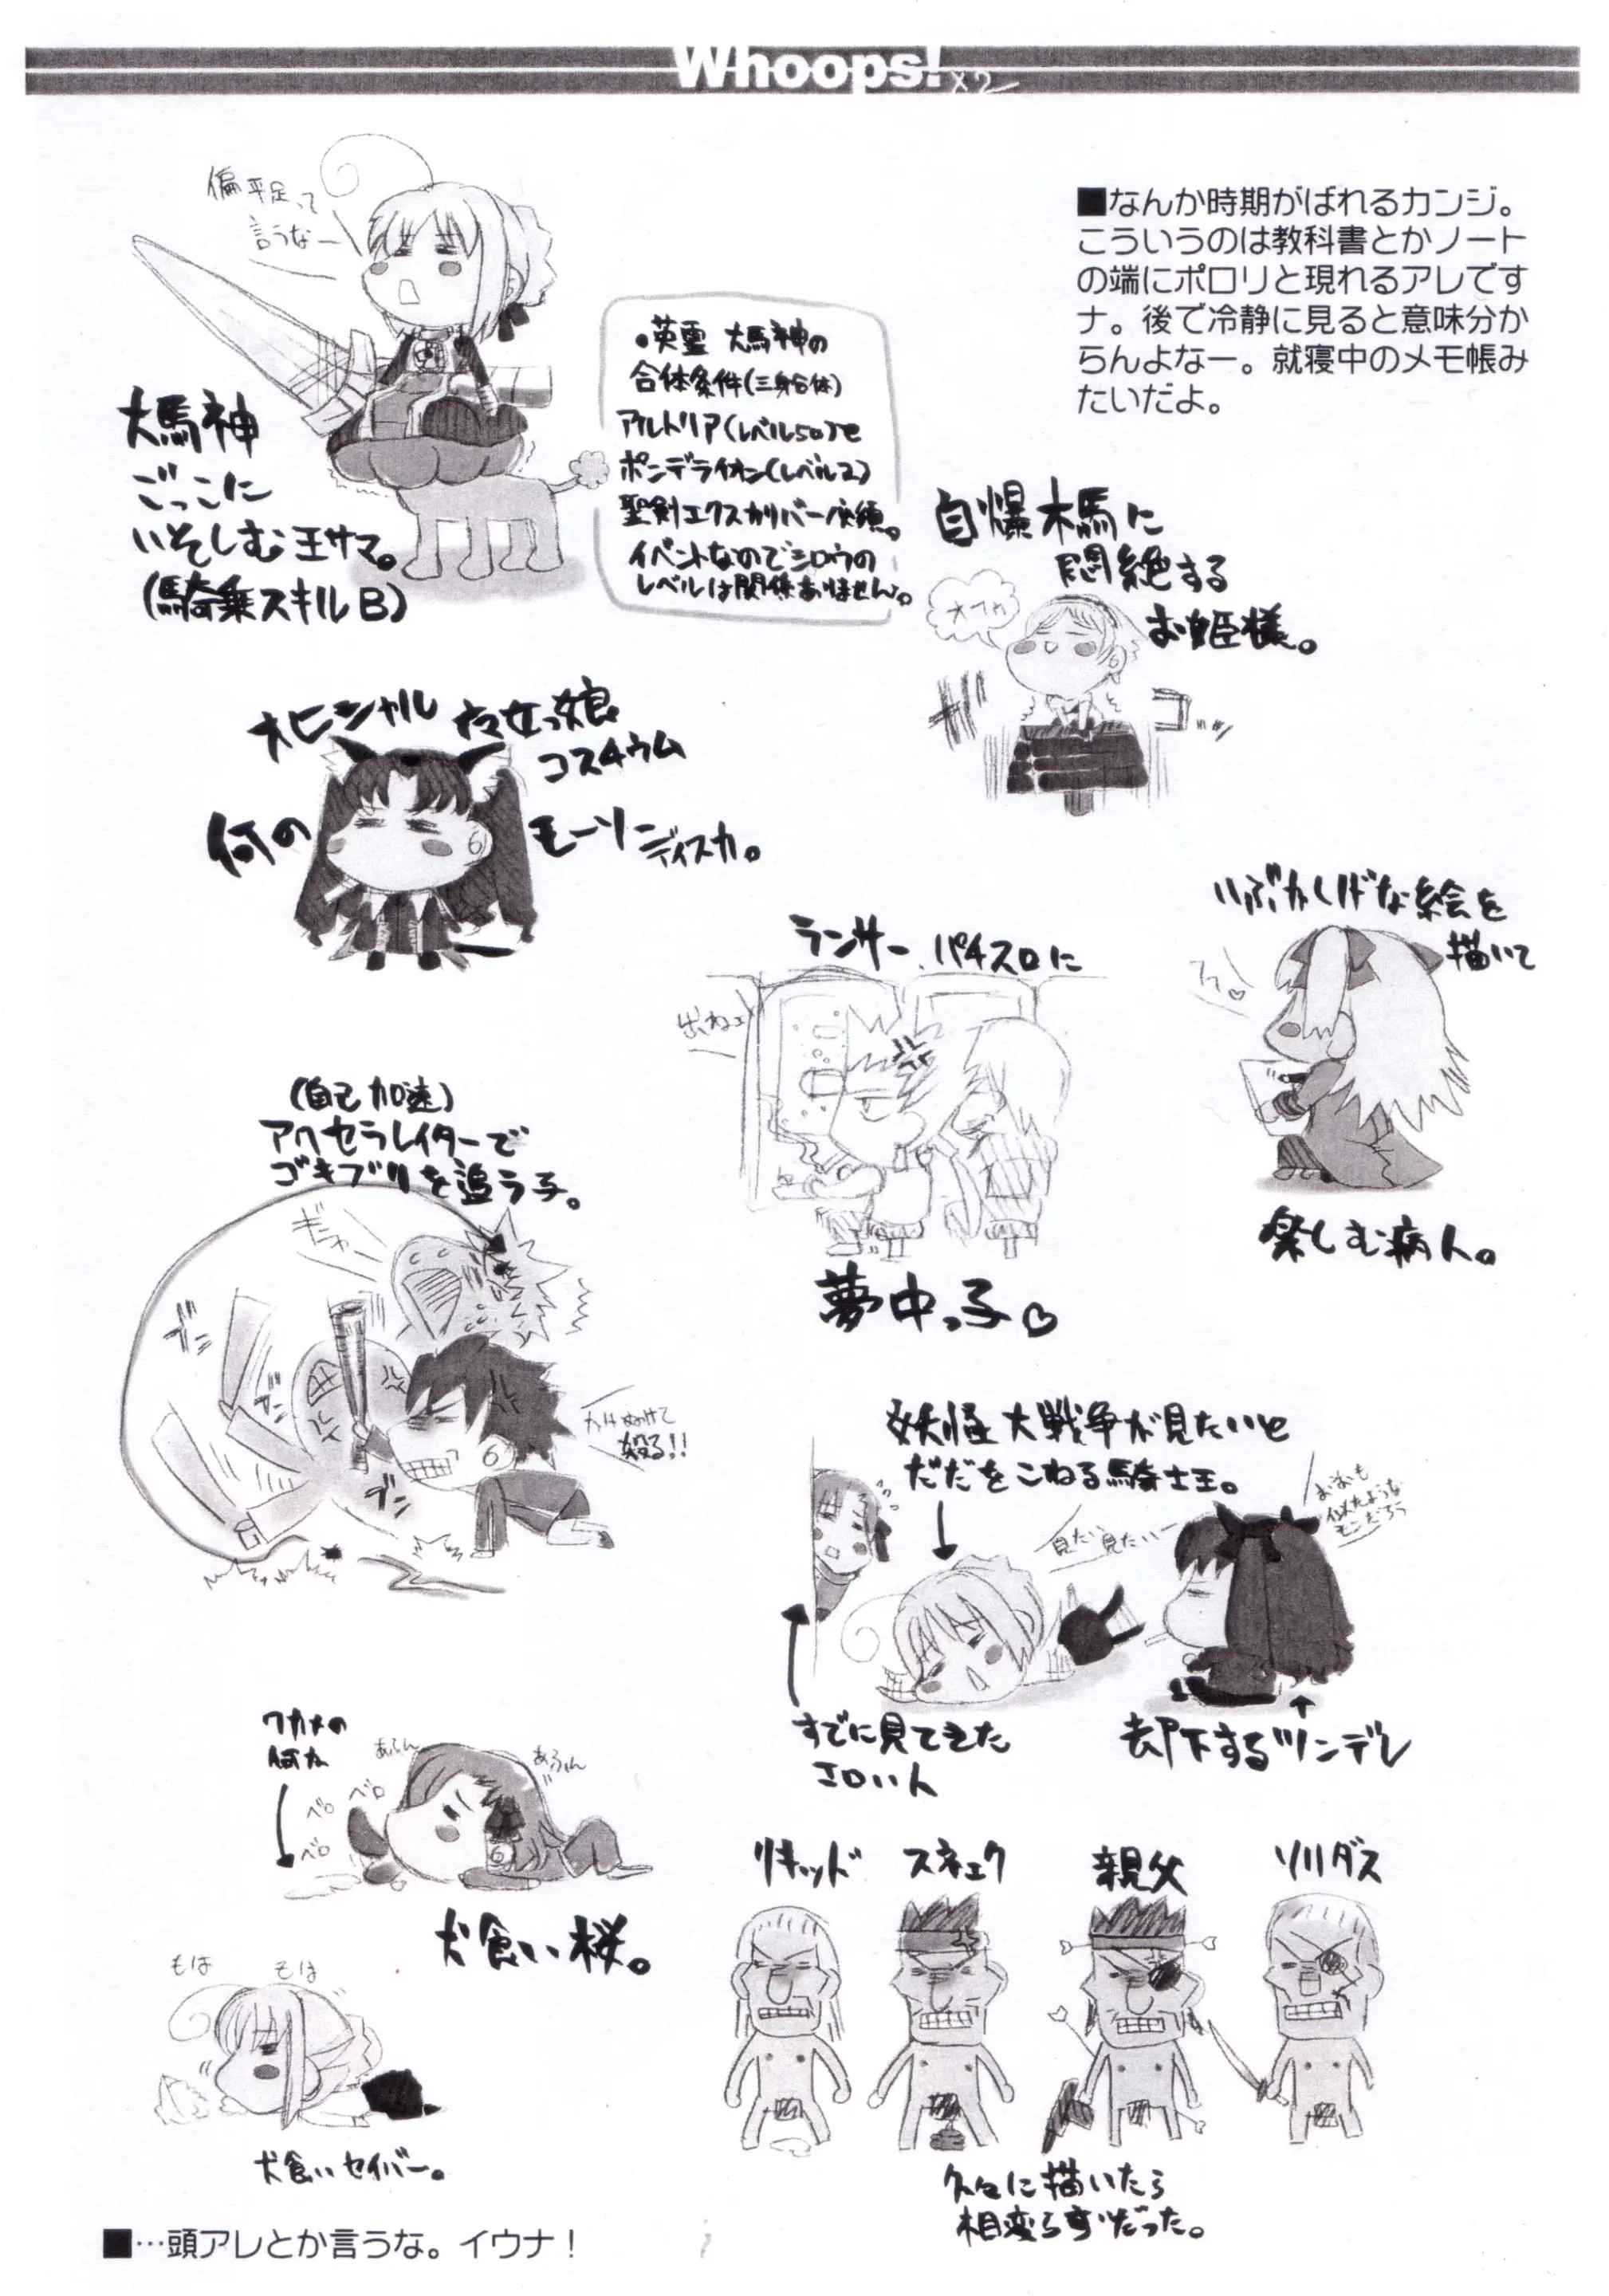 Whoops!
×2
■なんか時期がばれるカンジ。
こういうのは教科書とかノート
の端にポロリと現れるアレです
ナ。後で冷静に見ると意味分か
らんよなー。就寝中のメモ帳み
たいだよ。
偏平足って
言うなー
大馬神
ごっこに
いそしむ王サマ。
(騎乗スキルB)
•英霊 大馬神の
合体条件(三身合体)
アルトリア(レベル50)と
ポンデライオン(レベル2)
聖剣エクスカリバー必須。
イベントなのでシロウの
レベルは関係ありません。
自爆木馬に
悶絶する
お姫様。
オフゥ
ガ
コ
オヒシャル 魔女っ娘
コスチウム
何の
モーソーディスカ。
いぶかしげな絵を
描いて
フフ♡
楽しむ病人。
ランサー パチスロに
出ねェ
夢中っ子♡
(自己加速)
アクセラレイターで
ゴキブリを追う子。
ギャー
ブン
ブン
かけぬけて
殺る!!
妖怪大戦争が見たいと
だだをこねる騎士王。
見たい見たいー
おまえも
似たような
モンだろう
すでに見てきた
エロい人
却下するツンデレ
ワカメの
何か
あふん
あふん
ペロ
ペロ
ペロ
犬食い桜。
もは
もは
犬食いセイバー。
リキッド
スネェク
親父
ソリダス
久々に描いたら
相変らずだった。
■…頭アレとか言うな。イウナ!